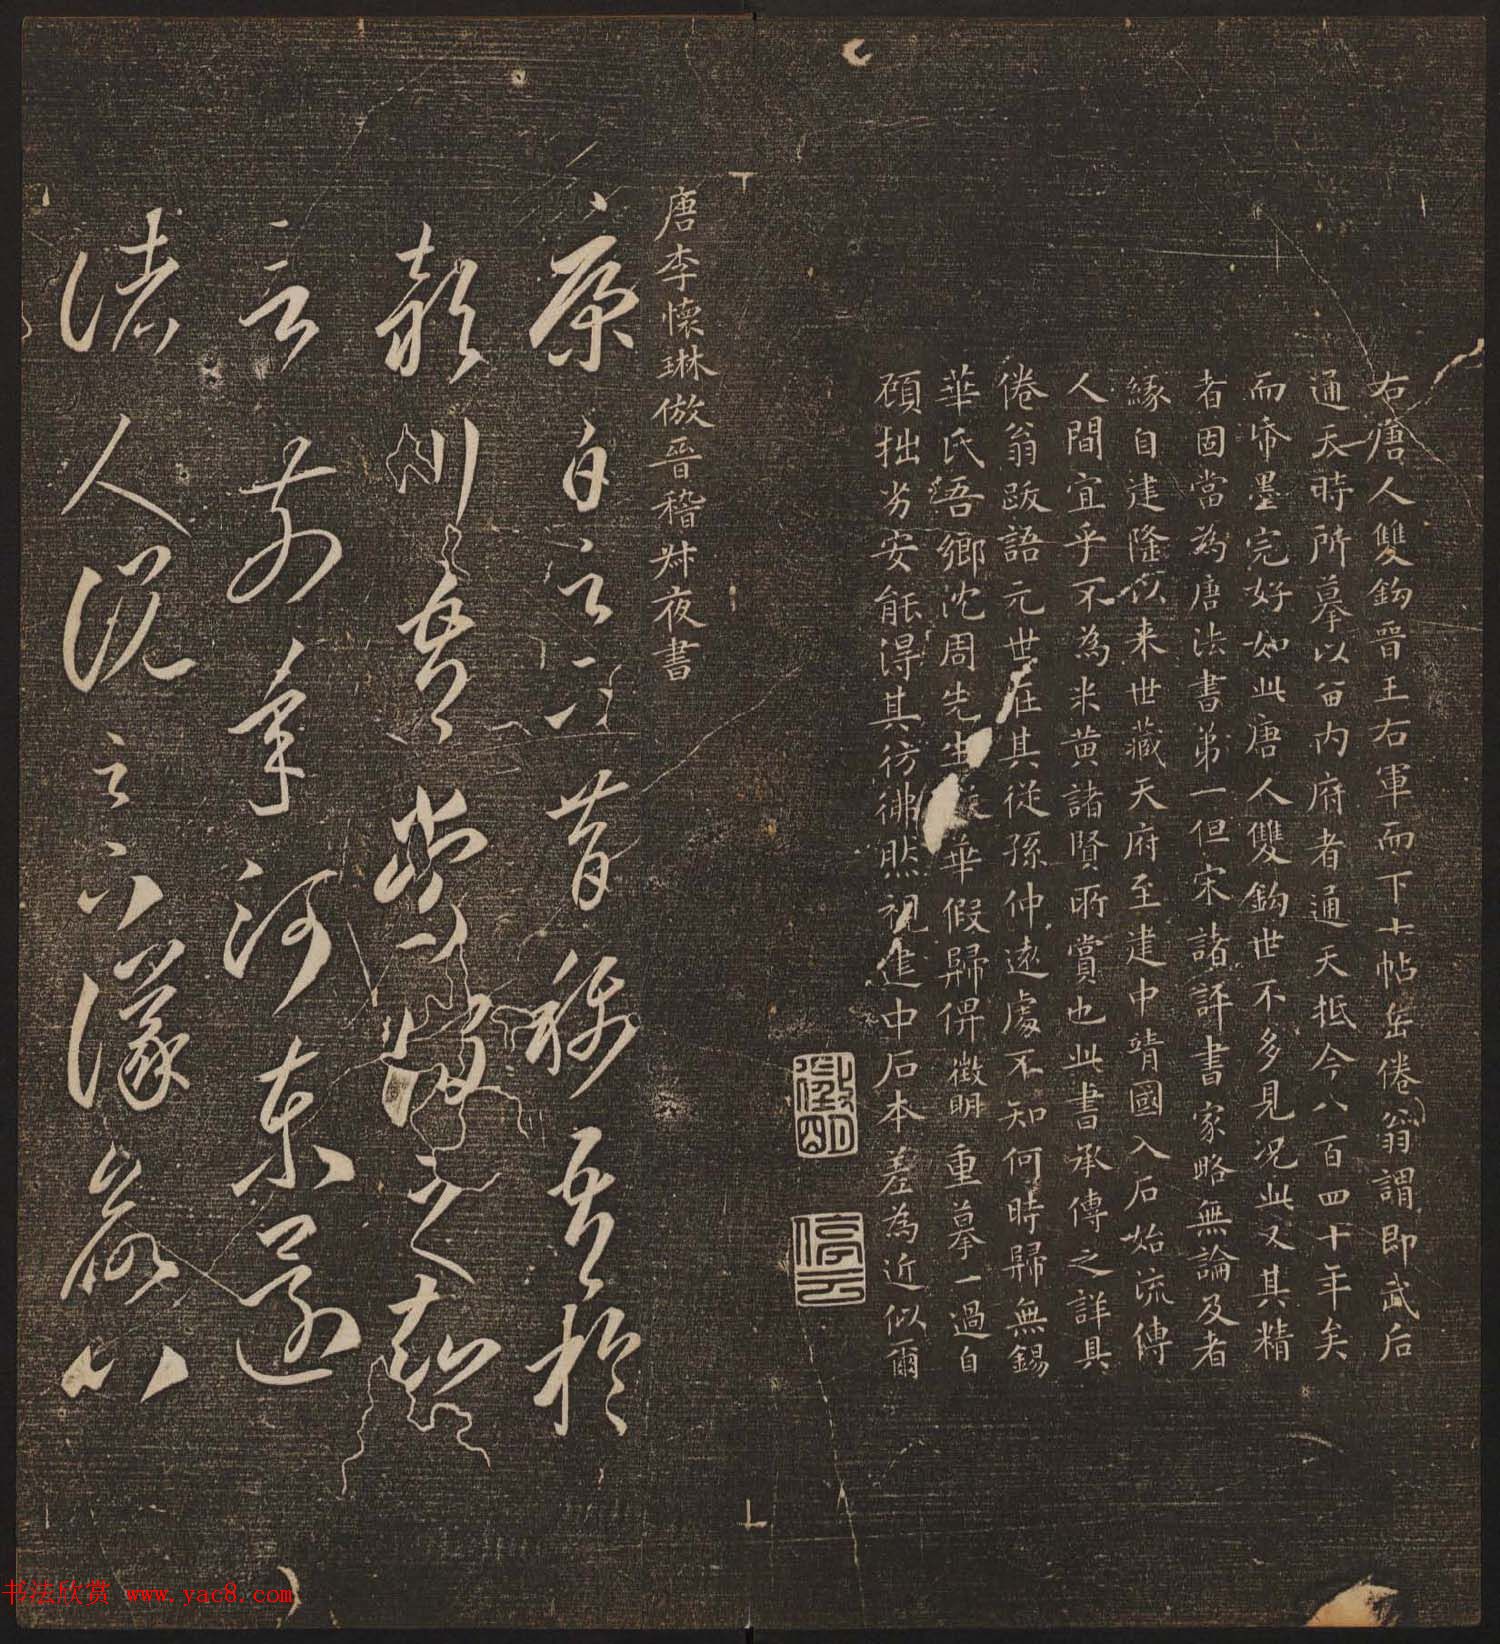 右唐人雙鈎晉王右軍而下十帖岳倦翁謂即武后
通天時所摹以留内府者通天抵今八百四十年矣
而帋墨完好如此唐人雙鈎世不多見况此又其精
者固當為唐法書弟一但宋諸評書家略無論及者
緣自建隆以来世藏天府至建中靖國入石始流傳
人間宜乎不為米黄諸賢所賞也此書承傳之詳具
倦翁跋語元世在其從孫仲遠處不知何時歸無錫
華氏吾鄉沈周先生從華假歸俾徵明重摹一過自
顧拙劣安能得其彷彿然視建中石本差為近似爾
徵明
停云
唐李懷琳倣晉稽叔夜書
康白足下昔稱吾於
潁川吾嘗謂之知
言前年河東還
諸人説足下議欲以
书法欣赏 www.yac8.com